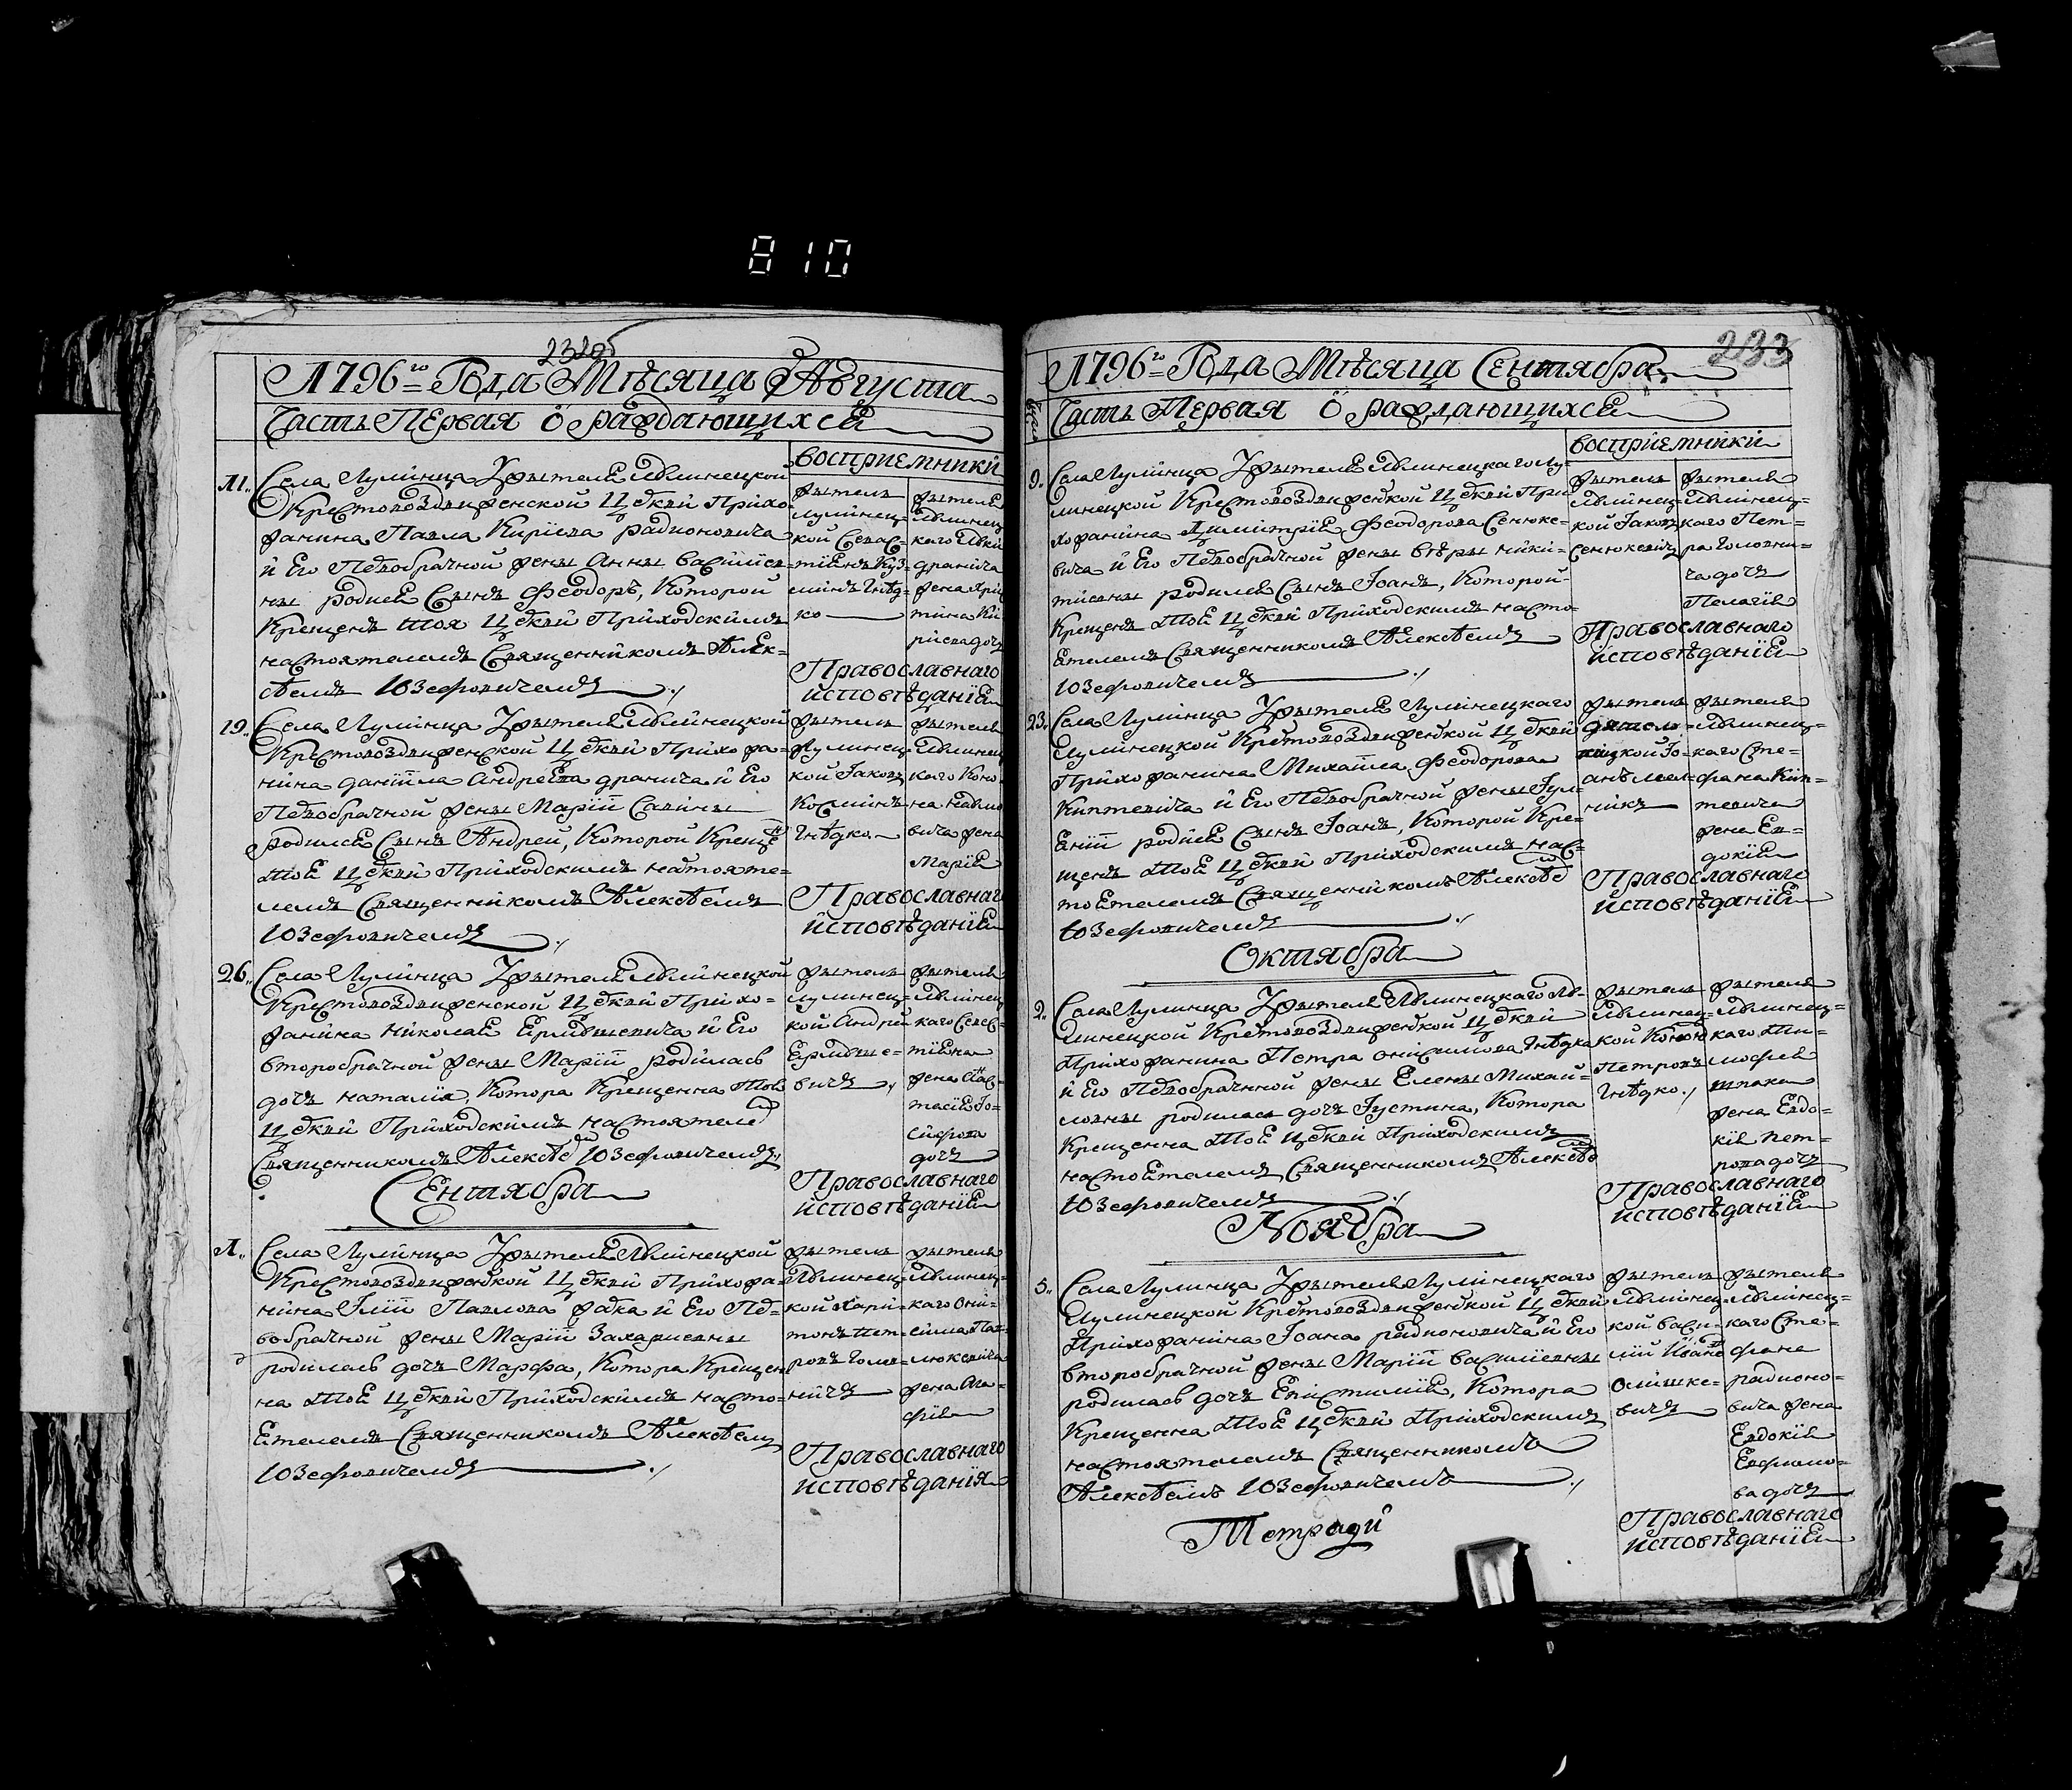 810
232об
1796го Года Мѣсяца Августа
Часть Первая о раждающихся
восприемники
11. Села Лулинца Жителя Лулинецкой
Крестовоздвиженской Цркви Прихо
жанина Павла Кириева радионовича
и Его Первобрачной жены Анны василиев
ны родися Сынъ Феодоръ, Которой
Крещенъ тоя Цркви Приходскимъ
настоятелемъ Священникомъ Алек=
сѣемъ Юзефовичемъ
житель
лулинец=
кой Севас=
тианъ Куз=
минъ Гнѣд=
ко
жителя
лулинец
каго
дранича
жена Хри
тина Ки
риева дочъ
Православнаго
исповѣдания
19. Села Лулинца Жителя Лулинецкой
Крестовоздвиженской Цркви Прихожа=
нина даниила Андреева дранича и Его
Первобрачной жены Марии Савины
родился Сынъ Андрей, Которой Креще
той Цркви Приходскимъ настояте=
лемъ Священникомъ Алексѣемъ
Юзефовичемъ
житель
Лулинец=
кой Іаковъ
Косминъ
Гнѣдко
жителя
Лулинец
каго Коно
на
вича жена
Мария
Православнаг
исповѣдания
26. Села Лулинца Жителя Лулинецкой
Крестовоздвиженской Цркви Прихо=
жанина Николая Ермошевича и Его
второбрачной жены Марии родилась
дочъ наталия, Котора Крещенна той
Цркви Приходскимъ настоятеле
Священникомъ Алексѣе Юзефовичемъ
житель
лулинец=
кой Андрей
Ермоше=
вичъ
жителя
лулинец
каго Севас
тияна
жена Нас=
тасия Іо=
сифова
дочъ
Православнаго
исповѣдания
Сентября
1. Села Лулинца Жителя Лулинецкой
Крестовоздвижеской Цркви Прихожа=
нина Илии Павлова жабка и Его Пер=
вобрачной жены Марии Захариевны
родилась дочъ Марфа, Котора Крещен
на той Цркви Приходскимъ насто=
ятелемъ Священникомъ Алексѣемъ
Юзефовичемъ
житель
Лулинец=
кой Хари=
тонъ Пет=
ровъ Голов=
ничъ
жителя
лулинец=
каго Они=
сима Пав=
люкевича
жена Ага=
фия
Православнаго
исповѣдания
233
1796го Года Мѣсяца Сентября
Часть Первая о раждающихся
восприемники
9. Села Лулинца Жителя Лулинецкаго Лу=
линецкой Крестовоздвижеской Цркви При
хожанина Димитрия Феодорова Сенюке=
вича и Его Первобрачной жены вѣры ники=
тиевны родися Сынъ Іоанъ, Которой
Крещенъ той Цркви Приходскимъ насто=
ятелемъ Священникомъ Алексѣемъ
Юзефовичемъ
житель
Лулинец=
кой Іаковъ
Сенюкевичъ
жителя
Лулинец=
каго Пет=
ра Головни=
ча дочъ
Пелагия
Православнаго
исповѣдания
23. Села Лулинца Жителя Лулинецкаго
Лулинецкой Крестовоздвижеской Цркви
Прихожанина Михаила Феодорова
Киптевича и Его Первобрачной жены Іул=
ении родися Сынъ Іоанъ, Которой Кре=
щенъ той Цркви Приходскимъ нас=
тоятелемъ Священникомъ Алексѣе
Юзефовичемъ
житель
кой Іо=
анъ мел=
никъ
жителя
лулинец=
каго Сте=
фана Кип=
тевича
жена Ев=
докия
Православнаго
исповѣдания
Октября
2. Села Лулинца Жителя Лулинецкаго Лу=
линецкой Крестовоздвижеской Цркви
Прихожанина Петра онисимова Гнѣдка
и Его Первобрачнной жены Елены Михай=
ловны родилася дочъ Іустина, Котора
Крещенна той Цркви Приходскимъ
настоятелемъ Священникомъ Алексѣе
Юзефовичемъ
житель
Лулинец=
кой Конон
Петровъ
Гнѣдко
жителя
Лулинец=
каго Ти=
мофея
шпака
жена Евдо=
кия пет=
рова дочъ
Православнаго
исповѣдания
Ноября
5. Села Лулинца Жителя Лулинецкаго
Лулинецкой Крестовоздвижеской Цркви
Прихожанина Іоана радионовича и Его
второбрачной жены Марии василиевны
родилась дочъ Епистимия, Котора
Крещенна той Цркви Приходскимъ
настоятелемъ Священникомъ
Алексѣемъ Юзефовичемъ
житель
Лулинец=
кой васи=
лий Иване
Олишке=
вичъ
жителя
Лулинец=
каго Сте=
фана
радионо=
вича жена
Евдокия
Евфимо=
ва дочъ
Православнаго
исповѣдания
Тетради